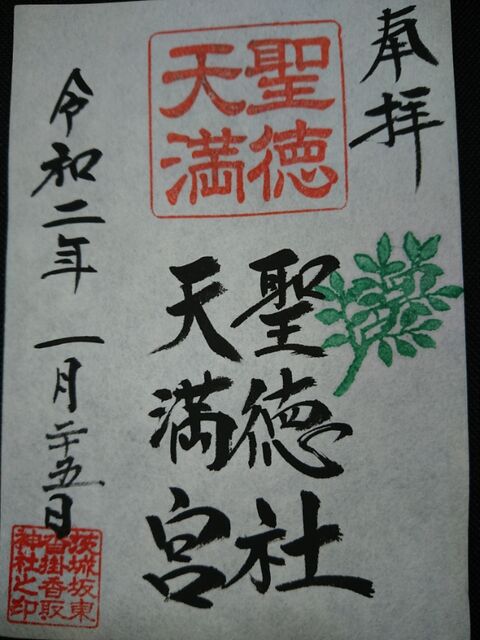 奉拝
聖徳
天満
聖徳社
天満宮
令和二年 一月二十五日
茨城坂東
沓掛香取
神社之印